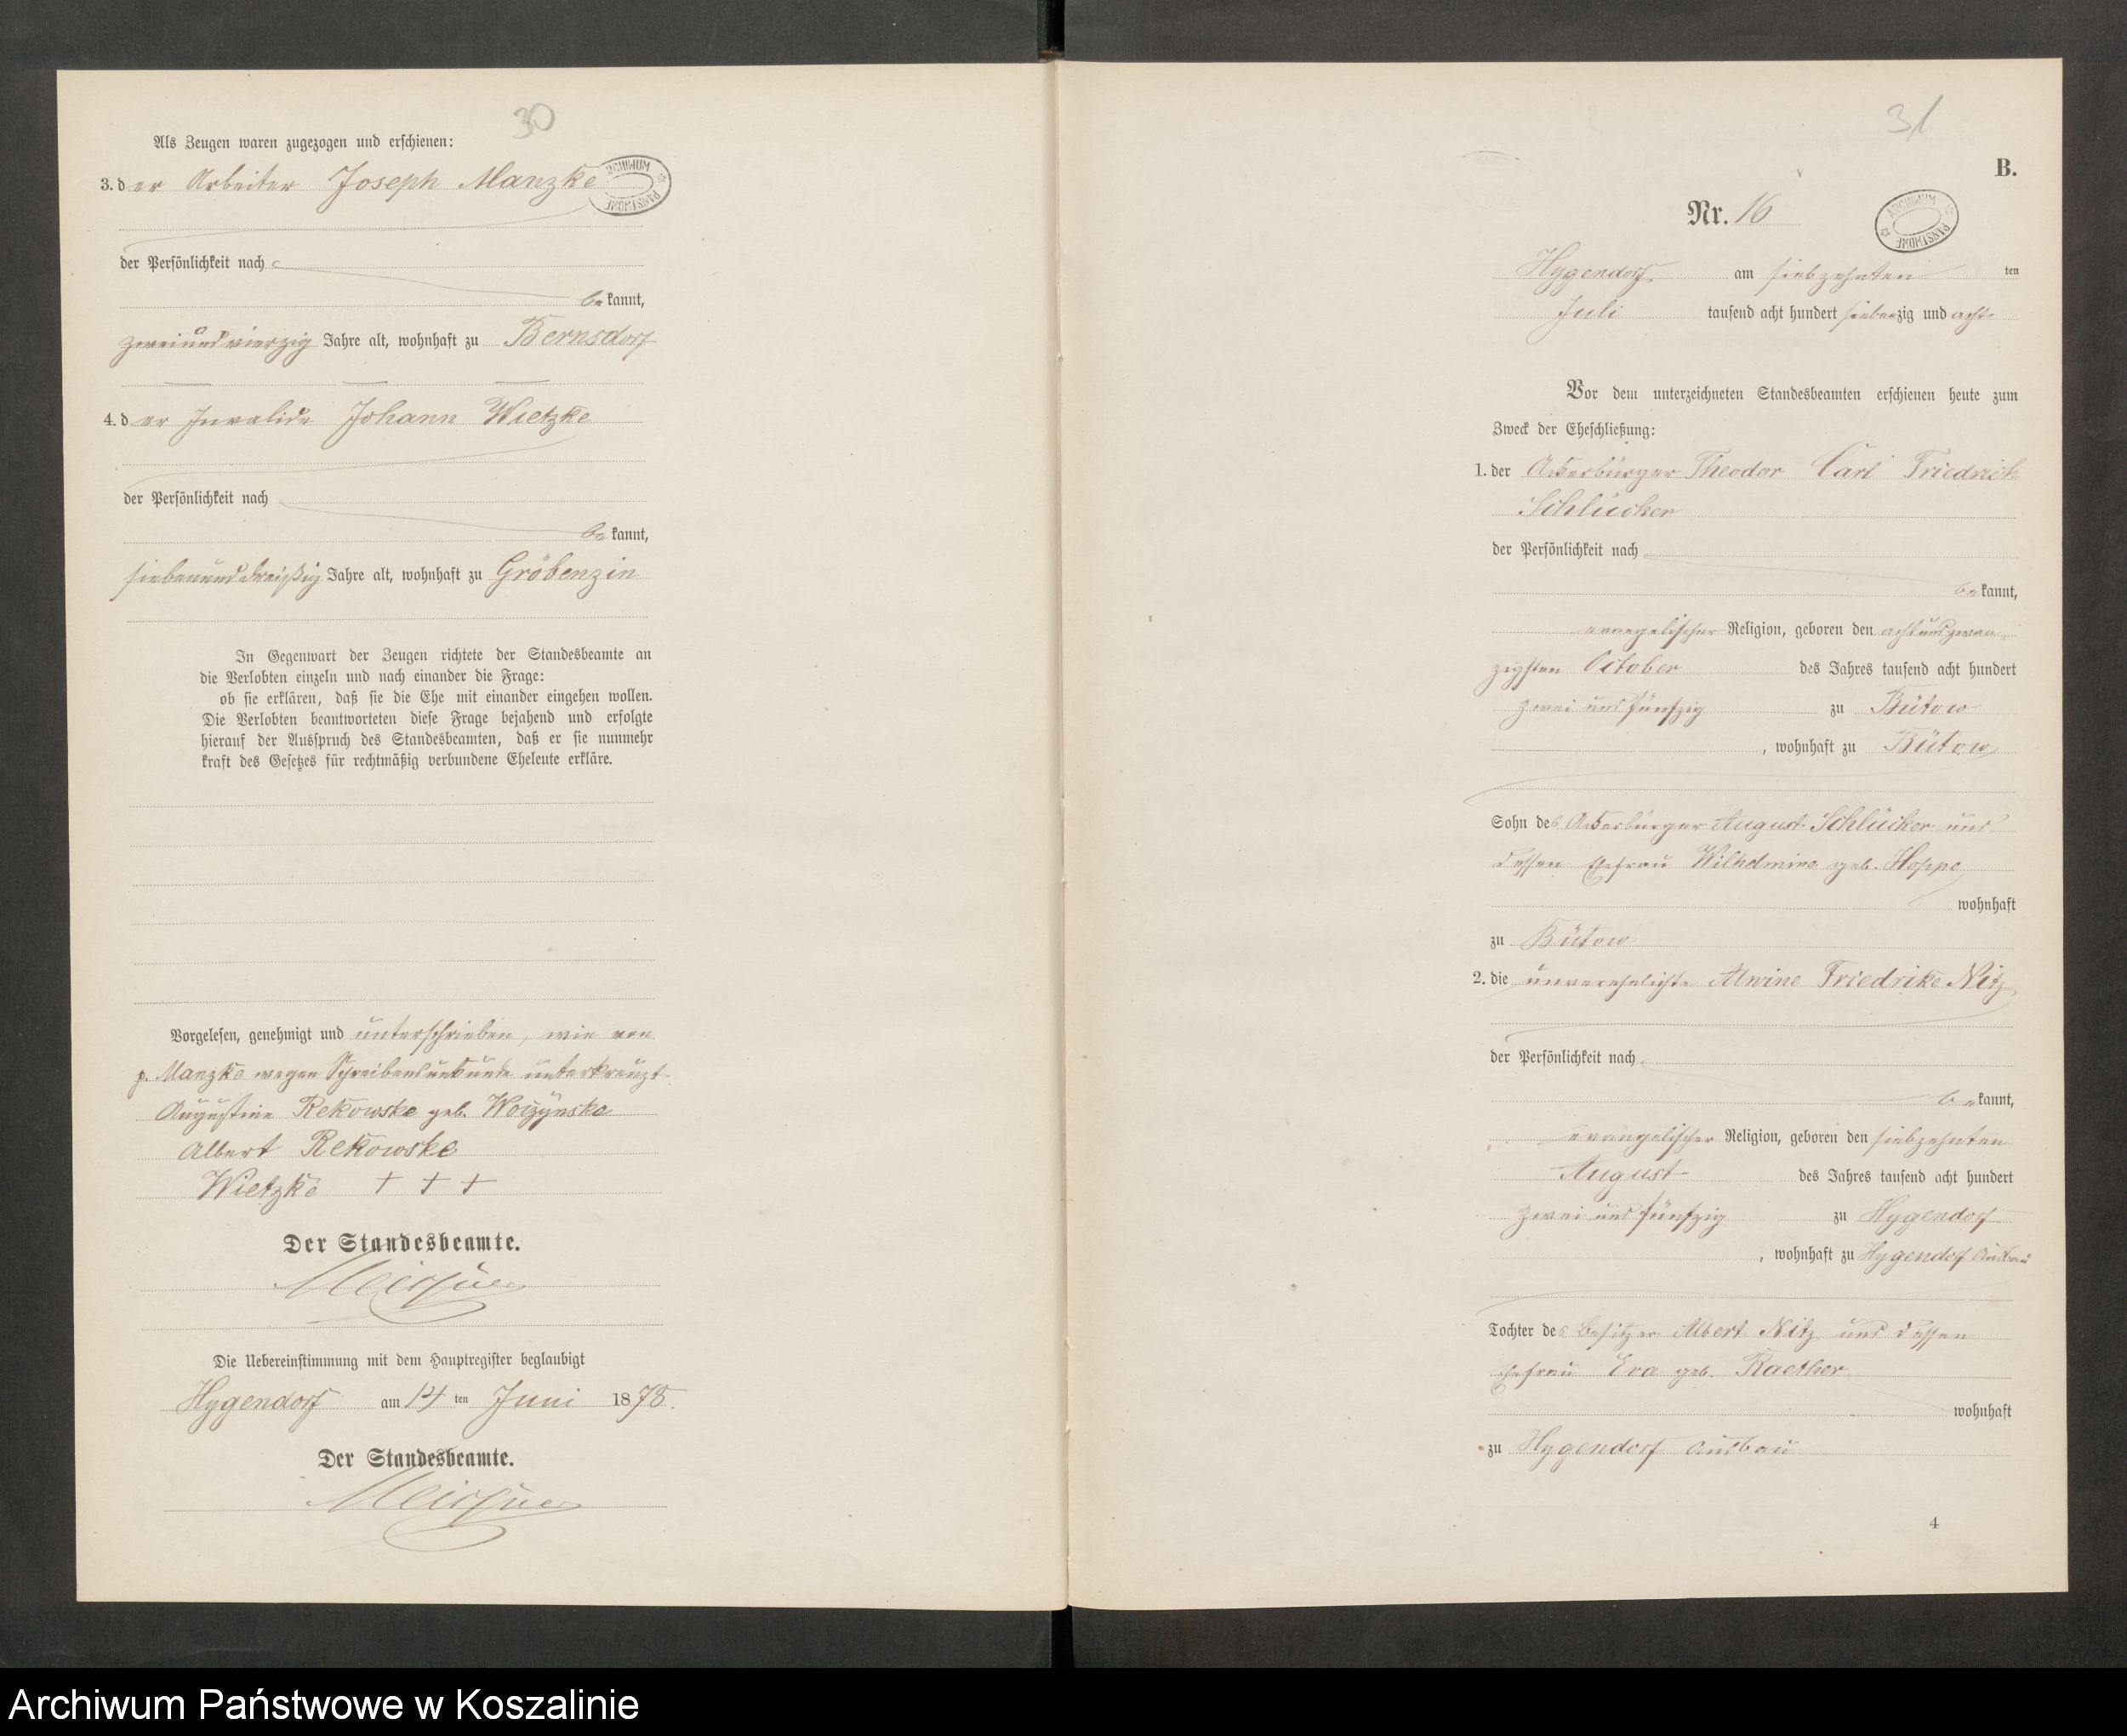 30
Als Zeugen waren zugezogen und erschienen:
3. der Arbeiter Joseph Manzke
ARCHIWUM PAŃSTWOWE
der Persönlichkeit nach
bekannt,
zweiundvierzig Jahre alt, wohnhaft zu Bernsdorf
4. der Invalide Johann Wietzke
der Persönlichkeit nach
bekannt,
siebenunddreißig Jahre alt, wohnhaft zu Gröbenzin
In Gegenwart der Zeugen richtete der Standesbeamte an
die Verlobten einzeln und nach einander die Frage:
ob sie erklären, daß sie die Ehe mit einander eingehen wollen.
Die Verlobten beantworteten diese Frage bejahend und erfolgte
hierauf der Ausspruch des Standesbeamten, daß er sie nunmehr
kraft des Gesetzes für rechtmäßig verbundene Eheleute erkläre.
Vorgelesen, genehmigt und unterschrieben, wie von
p. Manzke wegen Schreibensunkunde unterkreuzt
Augustine Rekowske geb. Woizynska
Albert Rekowske
Wietzke + + +
Der Standesbeamte.
Die Uebereinstimmung mit dem Hauptregister beglaubigt
Hygendorf am 14 ten Juni 1878.
Der Standesbeamte.
31
B.
Nr. 16
ARCHIWUM PAŃSTWOWE
Hygendorf am siebzehnten ten
Juli tausend acht hundert siebenzig und acht
Vor dem unterzeichneten Standesbeamten erschienen heute zum
Zweck der Eheschließung:
1. der Ackerbürger Theodor Carl Friedrich
Schlücker
der Persönlichkeit nach
bekannt,
evangelischer Religion, geboren den achtundzwan
zigsten October des Jahres tausend acht hundert
zwei und fünfzig zu Bütow
, wohnhaft zu Bütow
Sohn des Ackerbürger August Schlücker und
dessen Ehefrau Wilhelmine geb. Hoppe
wohnhaft
zu Bütow
2. die unverehelichte Alwine Friedrike Nitz
der Persönlichkeit nach
bekannt,
evangelischer Religion, geboren den siebzehnten
August des Jahres tausend acht hundert
zwei und fünfzig zu Hygendorf
, wohnhaft zu Hygendorf Ausbau
Tochter des Besitzer Albert Nitz und dessen
Ehefrau Eva geb. Raether
wohnhaft
zu Hygendorf Ausbau
4
Archiwum Państwowe w Koszalinie